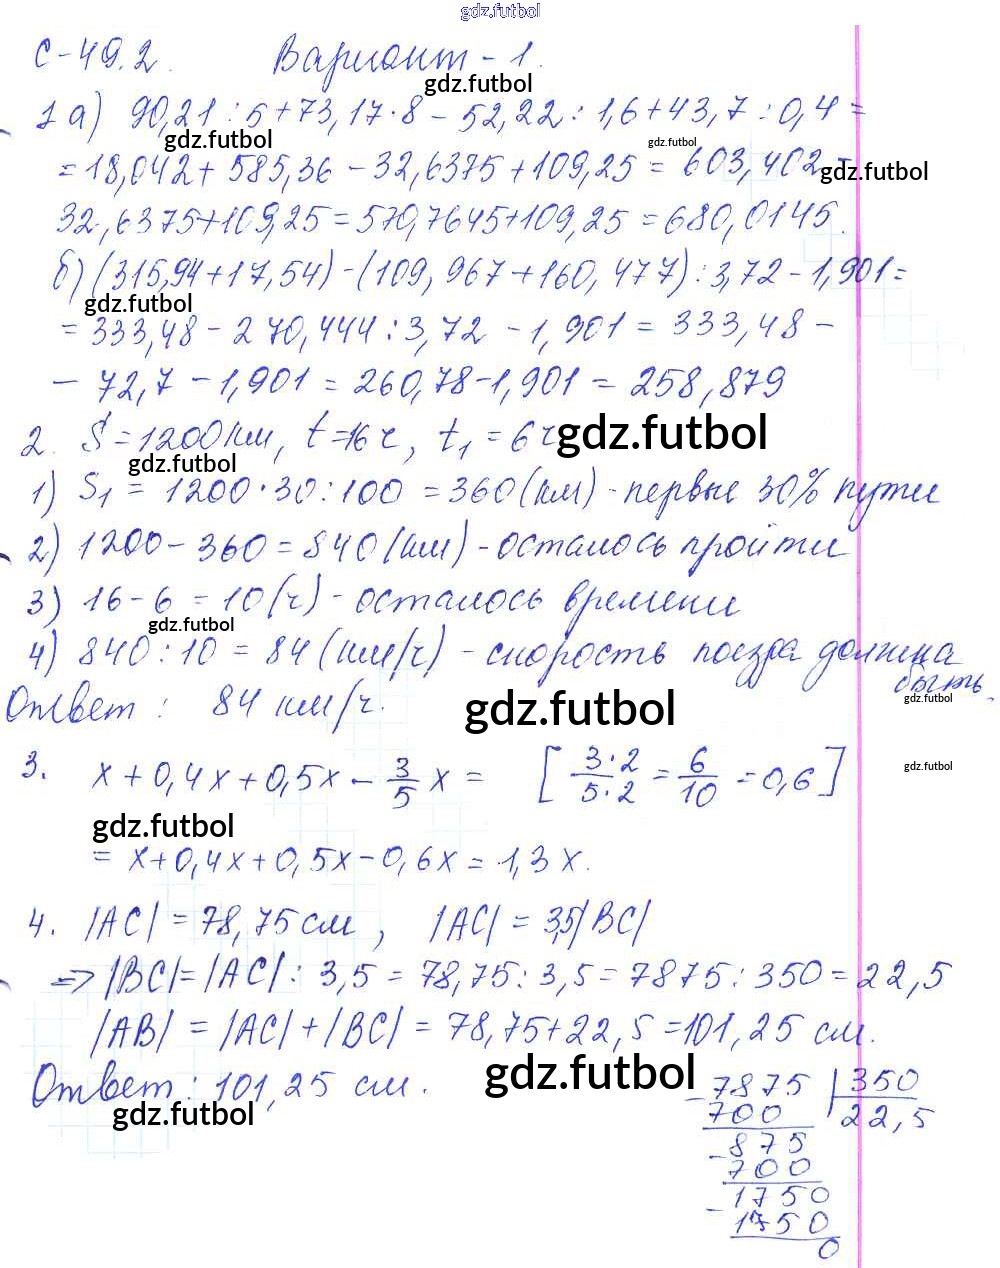 gdz.futbol
С-49.2. Вариант - 1.
gdz.futbol
1 а) 90,21 : 5 + 73,17 · 8 - 52,22 : 1,6 + 43,7 : 0,4 =
gdz.futbol gdz.futbol
= 18,042 + 585,36 - 32,6375 + 109,25 = 603,402 -
gdz.futbol
32,6375 + 109,25 = 570,7645 + 109,25 = 680,0145.
б) (315,94 + 17,54) - (109,967 + 160,477) : 3,72 - 1,901 =
gdz.futbol
= 333,48 - 270,444 : 3,72 - 1,901 = 333,48 -
- 72,7 - 1,901 = 260,78 - 1,901 = 258,879
2. S = 1200 км, t = 16 ч, t₁ = 6 ч
gdz.futbol
gdz.futbol
1) S₁ = 1200 · 30 : 100 = 360 (км) - первые 30% пути
2) 1200 - 360 = 840 (км) - осталось пройти
3) 16 - 6 = 10 (ч) - осталось времени
gdz.futbol
4) 840 : 10 = 84 (км/ч) - скорость поезда должна
быть.
Ответ: 84 км/ч.
gdz.futbol gdz.futbol
3. x + 0,4x + 0,5x - 3/5 x = [3·2/5·2 = 6/10 = 0,6]
gdz.futbol
gdz.futbol
= x + 0,4x + 0,5x - 0,6x = 1,3x.
4. |AC| = 78,75 см, |AC| = 3,5|BC|
=> |BC| = |AC| : 3,5 = 78,75 : 3,5 = 7875 : 350 = 22,5
|AB| = |AC| + |BC| = 78,75 + 22,5 = 101,25 см.
Ответ: 101,25 см.
gdz.futbol
gdz.futbol
- 7875 | 350
700 22,5
- 875
700
- 1750
1750
0